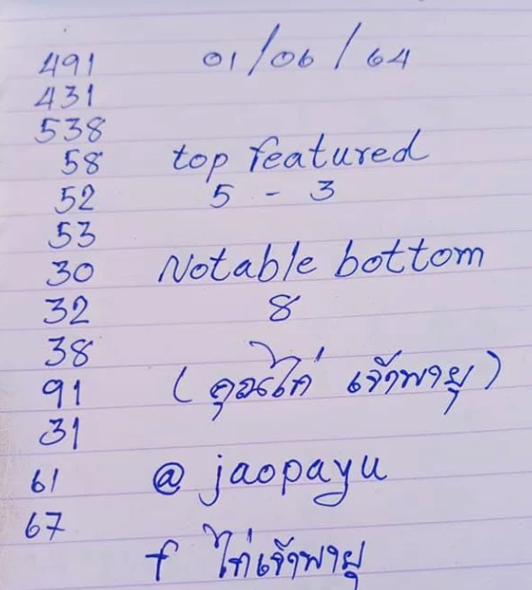 491 01/06/64
431
538
58 top featured
52 5 - 3
53
30 Notable bottom
32 8
38
91 (คุณไก่ เจ้าพายุ)
31
61 @ jaopayu
67
f ไก่เจ้าพายุ